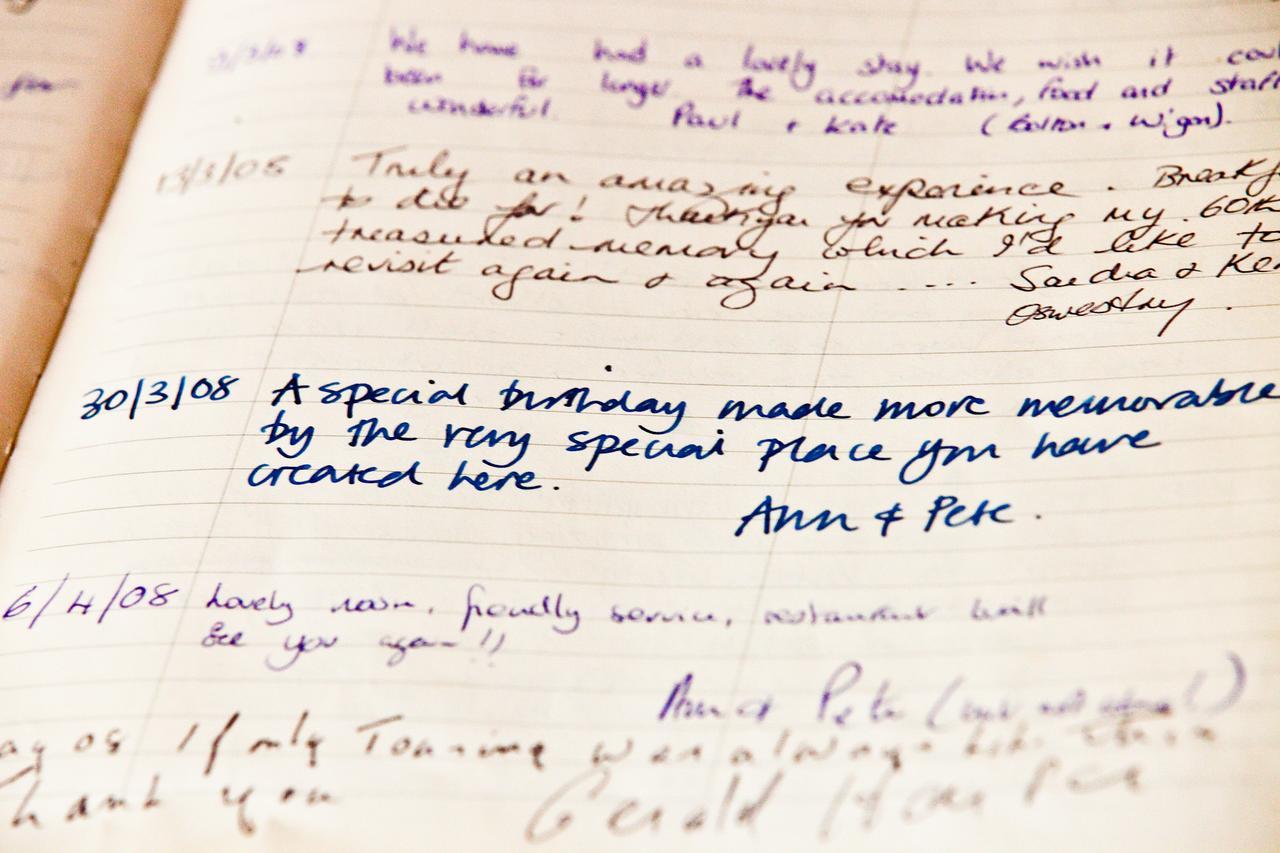 We have had a lovely stay. We wish it
been for longer. The accomodation, food and staff
wonderful. Paul + Kate (Bolton + Wigan).
13/3/08 Truly an amazing experience.
to die for! Thankyou for making my 60th
treasured memory which I'd like to
revisit again & again .... Sandra & Ken
Oswestry.
30/3/08 A special birthday made more memorable
by the very special place you have
created here.
Ann & Pete.
6/4/08 Lovely room, friendly service, restaurant
See you again!!
Ann & Pete
08 If only Touring was always like this
Thank you Gerald